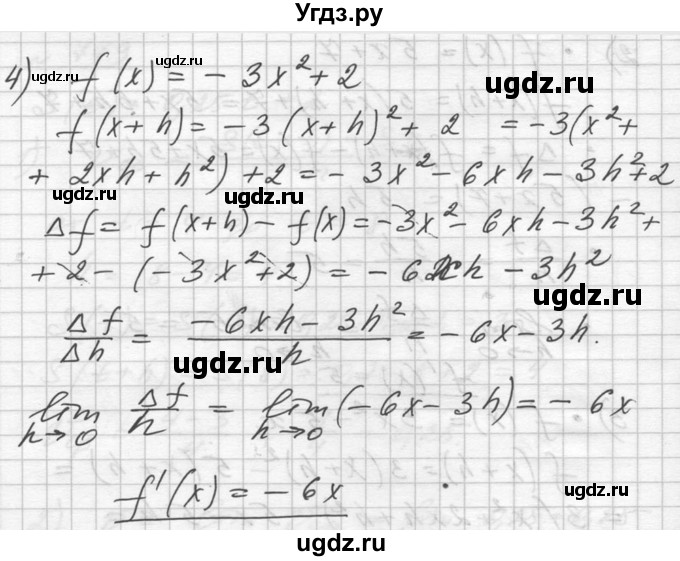 Угдз.ру
ugdz.ru
4) ugdz.ru f(x) = - 3x² + 2
ugdz.ru
f(x+h) = -3(x+h)² + 2 = -3(x² +
ugdz.ru
+ 2xh + h²) + 2 = - 3x² - 6xh - 3h² + 2
ugdz.ru ugdz.ru
Δf = f(x+h) - f(x) = -3x² - 6xh - 3h² +
+ 2 - (-3x² + 2) = - 6xh - 3h²
ugdz.ru
Δf/Δh = (-6xh - 3h²)/h = - 6x - 3h.
ugdz.ru
lim h→0 Δf/h = lim h→0 (-6x - 3h) = - 6x
ugdz.ru
f'(x) = -6x
ugdz.ru
ugdz.ru
ugdz.ru